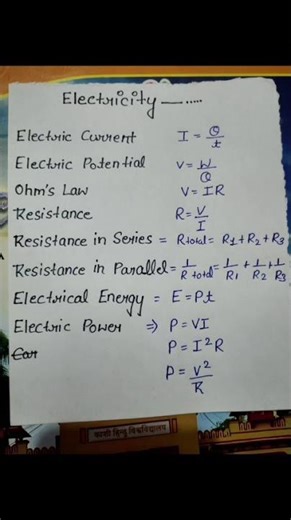 Electricity —.....
Electric Current I = Q/t
Electric Potential V = W/Q
Ohm's Law V = IR
Resistance R = V/I
Resistance in Series = Rtotal = R1 + R2 + R3
Resistance in Parallel = 1/R total = 1/R1 + 1/R2 + 1/R3
Electrical Energy = E = P.t
Electric Power ⇒ P = VI
Ear P = I²R
P = V²/R
काशी हिन्दू विश्वविद्यालय